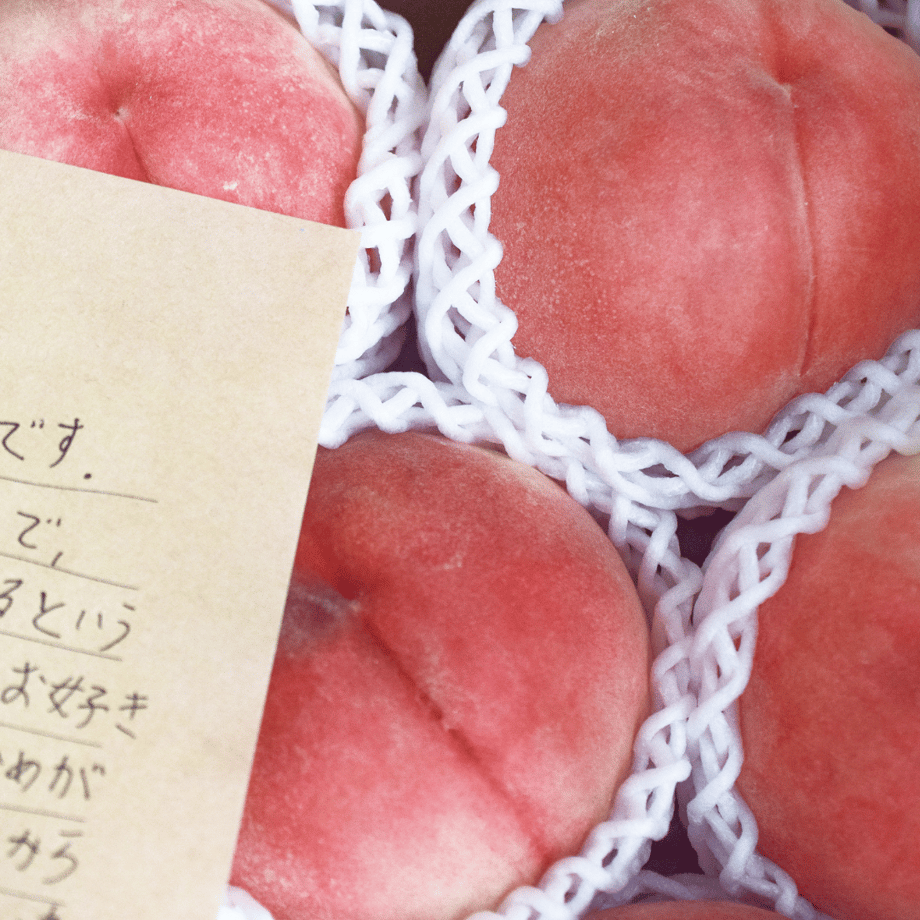 です.
で,
るという
お好き
めが
から